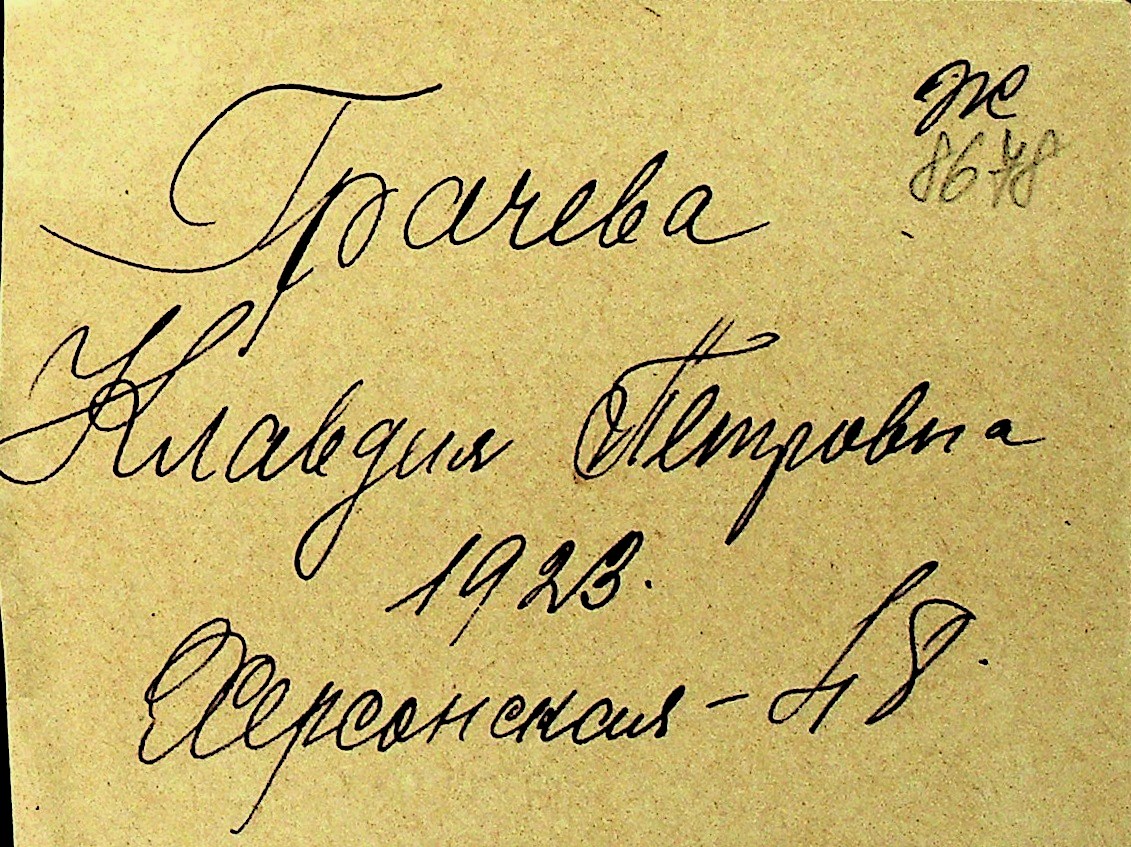 Ж
8678
Грачева
Клавдия Петровна
1923.
Херсонская - 48.